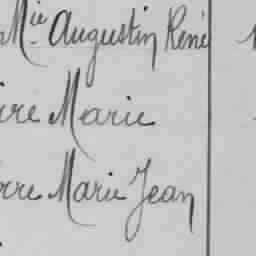 Mie Augustin René
ire Marie
rre Marie Jean